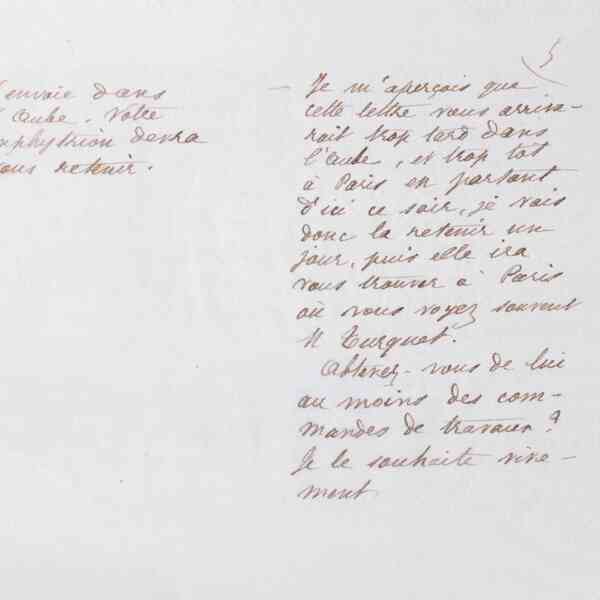 envoie dans
Aube. Votre
phytrion devra
ous retenir.
5
Je m'aperçois que
cette lettre vous arrive-
rait trop tard dans
l'Aube, et trop tôt
à Paris en partant
d'ici ce soir, je vais
donc la retenir un
jour, puis elle ira
vous trouver à Paris
où vous voyez souvent
M Turquet.
Obtenez-vous de lui
au moins des com-
mandes de travaux?
Je le souhaite vive-
ment